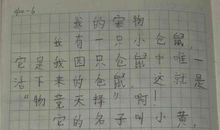 4w-6
我的宠物
我有一只小仓鼠，
它是我四只仓鼠中唯一
活下来的仓鼠，这就是
“物竞天择”啊！
它的名子叫小黄，